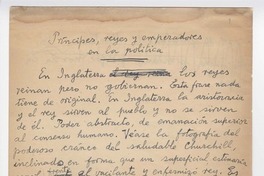 Príncipes, reyes y emperadores
en la política
En Inglaterra los reyes
reinan pero no gobiernan. Esta fase nada
tiene de original. En Inglaterra la aristocracia
y el rey sirven al pueblo y no se sirven
de él. Poder abstracto, de emanación superior
al consenso humano. Véase la fotografía del
poderoso cráneo del saludable Churchill,
inclinado en forma que un superficial
al vacilante y enfermizo rey. Es